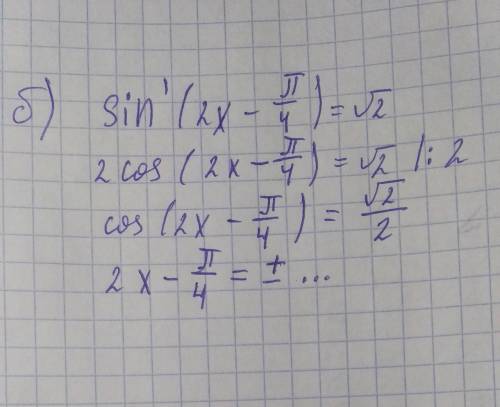 б) sin' (2x - π/4) = √2
2 cos (2x - π/4) = √2 /: 2
cos (2x - π/4) = √2/2
2x - π/4 = ± ...